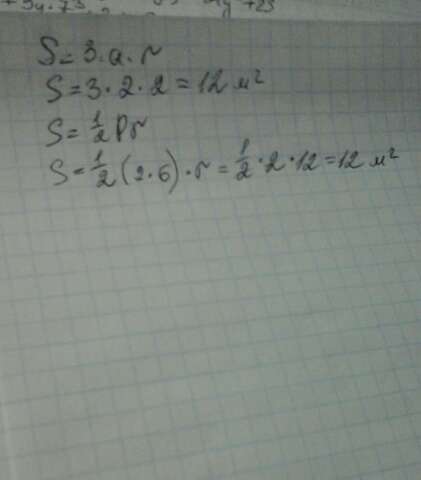 S = 3·a·r
S = 3·2·2 = 12 м²
S = 1/2 Pr
S = 1/2 (2·6)·r = 1/2·2·12 = 12 м²